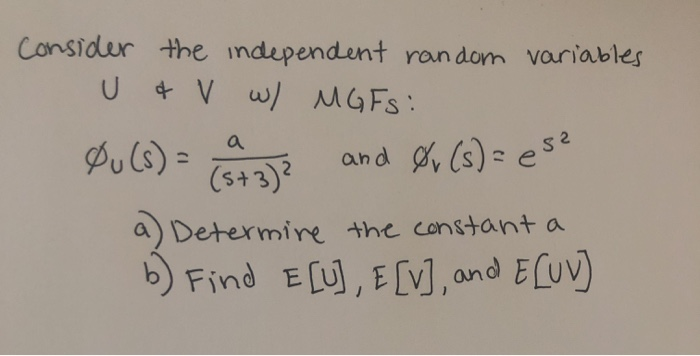 Consider the independent random variables
U & V w/ MGFs:
ϕ_U(s) = a/(s+3)² and ϕ_V(s) = e^{s²}
a) Determine the constant a
b) Find E[U], E[V], and E[UV]